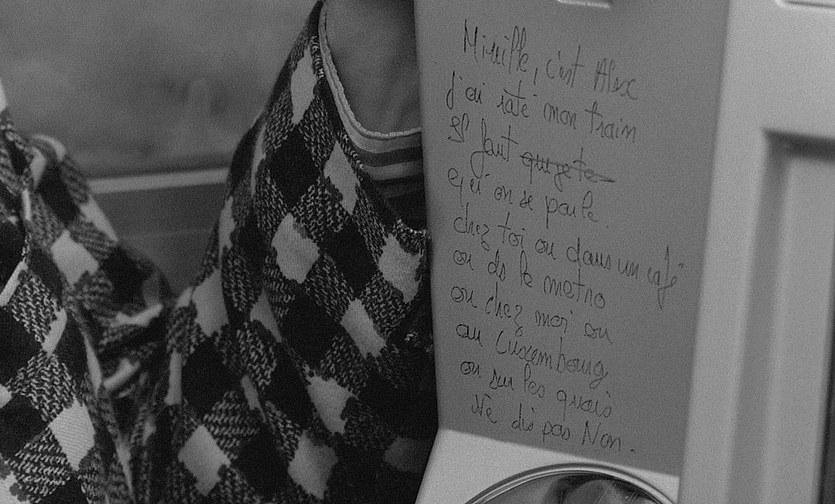 Mireille, c'est Alex
j'ai raté mon train
Il faut que je te
qu'on se parle.
chez toi ou dans un café
ou ds le métro
ou chez moi ou
au Luxembourg
ou sur les quais
Ne dis pas Non.